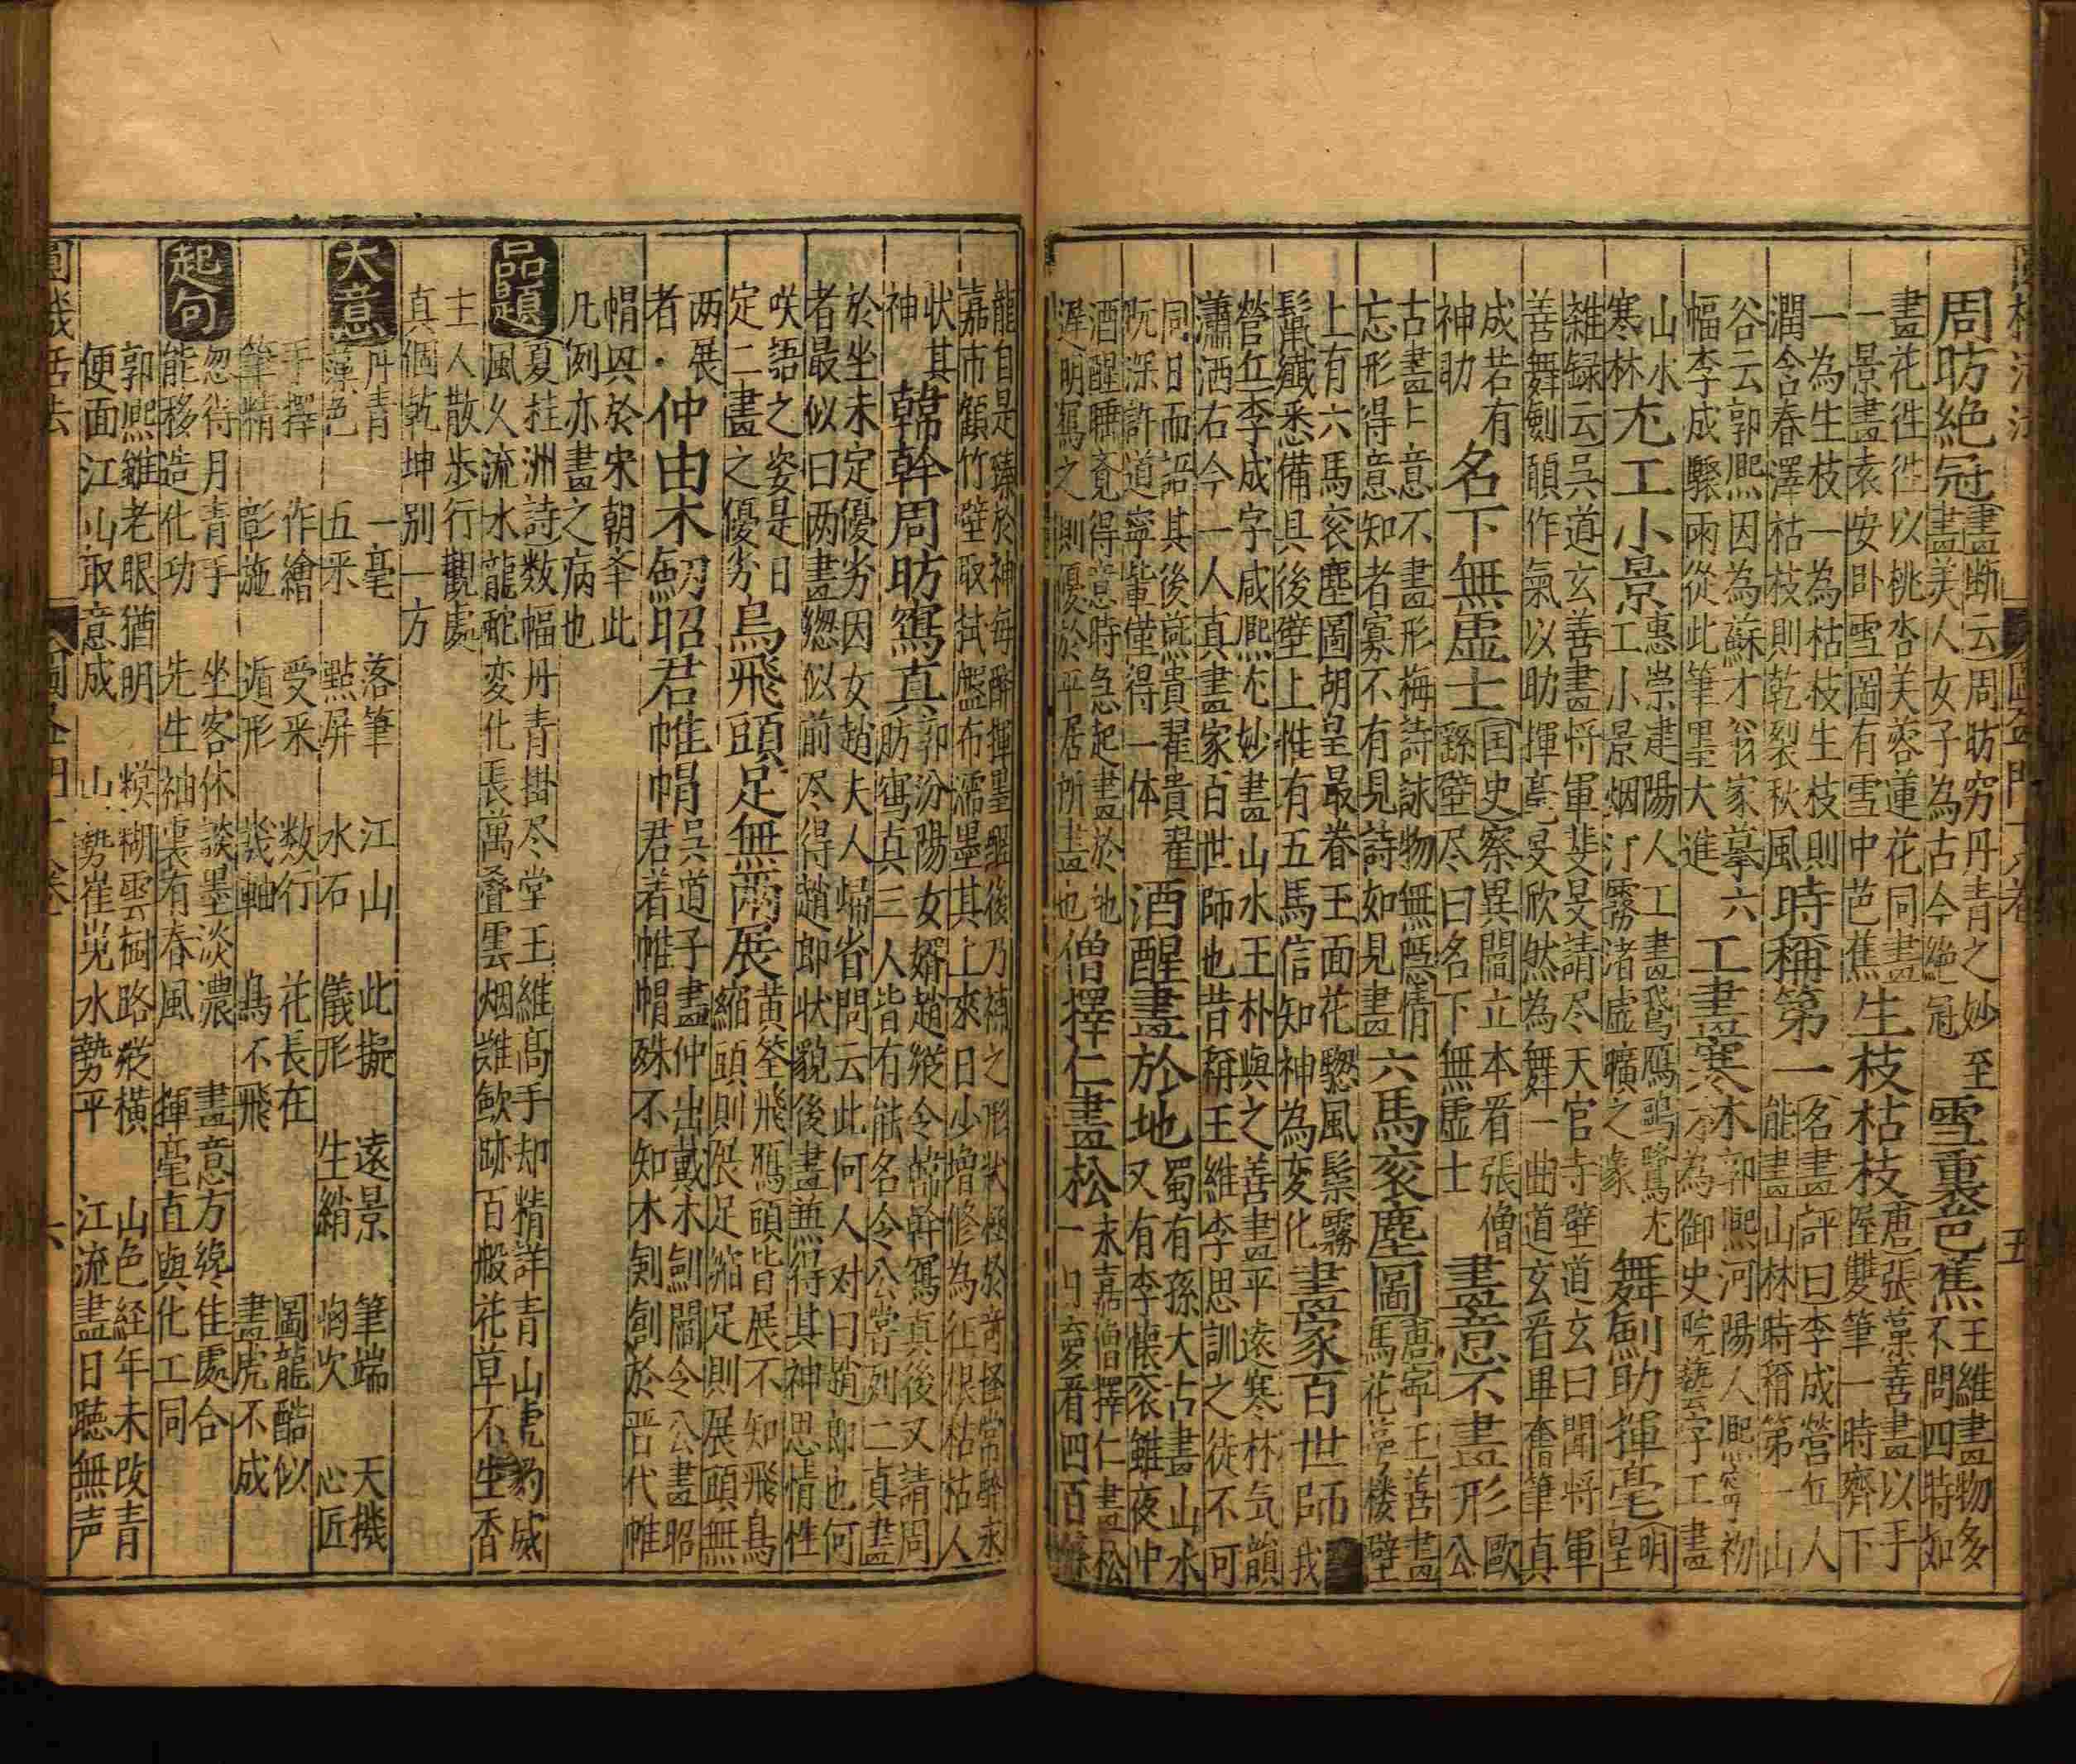 周昉絶冠
畫断云周昉窮丹青之妙至
畫美人女子為古今絶冠
雪裏芭蕉
王維畫物多
不問四時如
畫花徃徃以桃杏芙蓉蓮花同畫
一景畫袁安卧雪圖有雪中芭蕉
生枝枯枝
唐張藻善畫以手
握雙筆一時齊下
一為生枝一為枯枝生枝則
潤含春澤枯枝則乾裂秋風
時稱第一
名畫評曰李成營丘人
能畫山林時稱第一山
谷云郭熈因為蘇才翁家摹六
幅李成驟雨從此筆墨大進
工畫寒
木郭熈河陽人熈寧初
為御史院藝字工畫
山水
寒林
尤工小景
惠崇建陽人工畫鵞鴈鷺尤
工小景烟汀霧渚虛曠之象
舞劍助揮毫
明
皇
雜録云吳道玄善畫将軍斐旻請尽天官寺壁道玄曰聞将軍
善舞劍願作氣以助揮毫旻欣然為舞一曲道玄看畢奮筆真
成若有
神助
名下無虛士
国史察異閻立本看張僧
繇壁尽曰名下無虛士
畫意不畫形
歐
公
古畫意不畫形梅詩詠物無隱情
忘形得意知者寡不有見詩如見畫
六馬衮塵圖
唐寧王善畫
馬花萼楼壁
上有六馬衮塵圖胡皇最眷玉面花驄風鬃霧
鬣纎悉備具後壁上惟有五馬信知神為変化
畫家百世師
我
營丘李成字咸熈尤妙畫山水王朴與之善畫平遠寒林気韻
瀟洒右今一人真畫家百世師也昔稱王維李思訓之徒不可
同日而語其後燕貴翟貴翟
既深許道寧輩僅得一体
酒醒畫於地
蜀有孫大古畫山水
又有李懐衮雖夜中
酒醒睡覔得意時急起畫於地
遅明寫之則優於平居所畫也
僧擇仁畫松
末嘉僧擇仁畫松
一日夢看四百餘
龍自是臻於神每醉揮墨
後乃補之形狀極於竒怪常醉永
嘉市顧竹壁取拭盤布濡墨其上來日少增修為征根枯枯人
状其
神
韓幹周昉寫真
郭汾陽女婿趙縱令韓幹寫真後又請周
昉寫真三人皆有能名令公嘗列二真畫
於坐未定優劣因女趙夫人歸省問云此何人对曰趙郎也何
者最似曰两畫緫似前尽得趙郎状貌後畫兼得其神思情性
咲語之姿是日
定二畫之優劣
烏飛頭足無兩展
黄筌飛鴈頭皆展不知飛鳥
縮頭則展足縮足則展頭無
两展
者
仲由木劒昭君帷帽
吳道子畫仲由戴木劍閻令公畫昭
君着帷帽殊不知木劍創於晋代帷
帽兴於宋朝本此
凡例亦畫之病也
品題
夏桂洲詩数幅丹青掛尽堂王維髙手却精詳青山虎豹威
風久流水龍䖳変化長萬叠雲烟雖歛跡百般花草不生香
主人散步行觀處
真個乾坤别一方
大意
丹青 一毫 落筆 江山 此擬 遠景 筆端 天機
藻色 五采 㸃屏 水石 儀形 生綃 吹 心匠
手擇 作繪 受采 数行 花長在 圖龍酷似
筆精 彰施 遁形 幾軸 鳥不飛 畫虎不成
起句
忽待月青手 坐客休談墨淡濃 畫意方緫佳處合
能移造化功 先生袖裏有春風 揮毫直與化工同
郭熈雖老眼猶明 糢糊雲樹路縱横 山色経年未改青
便面江山取意成 山勢崔嵬水勢平 江流盡日聴無声